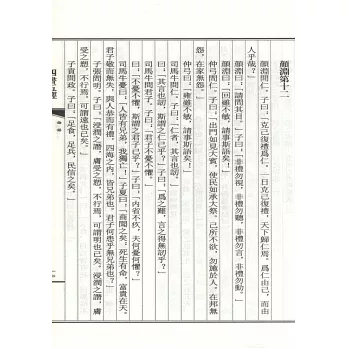 顏淵第十二
顏淵問仁。子曰：「克己復禮爲仁。一日克己復禮，天下歸仁焉。爲仁由己，而由
人乎哉？」
顏淵曰：「請問其目。」子曰：「非禮勿視，非禮勿聽，非禮勿言，非禮勿動。」
顏淵曰：「回雖不敏，請事斯語矣！」
仲弓問仁。子曰：「出門如見大賓，使民如承大祭。己所不欲，勿施於人。在邦無
怨，在家無怨。」
仲弓曰：「雍雖不敏，請事斯語矣！」
司馬牛問仁。子曰：「仁者，其言也訒。」
曰：「其言也訒，斯謂之仁已乎？」子曰：「爲之難，言之得無訒乎？」
司馬牛問君子。子曰：「君子不憂不懼。」
曰：「不憂不懼，斯謂之君子已乎？」子曰：「內省不疚，夫何憂何懼？」
司馬牛憂曰：「人皆有兄弟，我獨亡！」子夏曰：「商聞之矣：死生有命，富貴在天。
君子敬而無失，與人恭而有禮，四海之內，皆兄弟也。君子何患乎無兄弟也？」
子張問明。子曰：「浸潤之譖，膚受之愬，不行焉，可謂明也已矣。浸潤之譖，膚
受之愬，不行焉，可謂遠也已矣。」
子貢問政。子曰：「足食，足兵，民信之矣。」